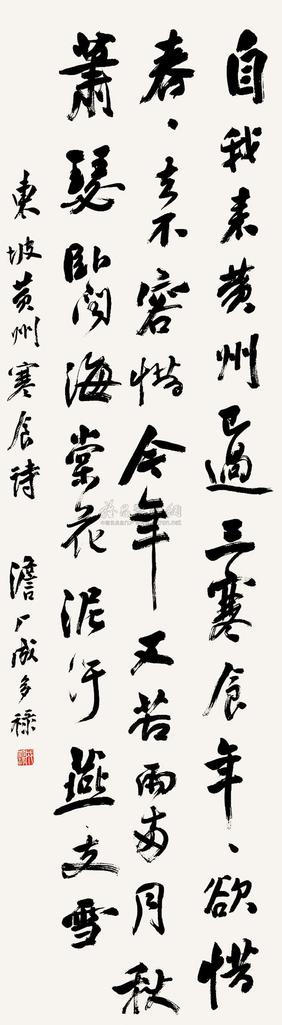 自我来黄州已过三寒食年、欲惜
春、去不容惜今年又苦雨两月秋
萧瑟卧闻海棠花泥污燕支雪
东坡黄州寒食诗 澹厂成多禄